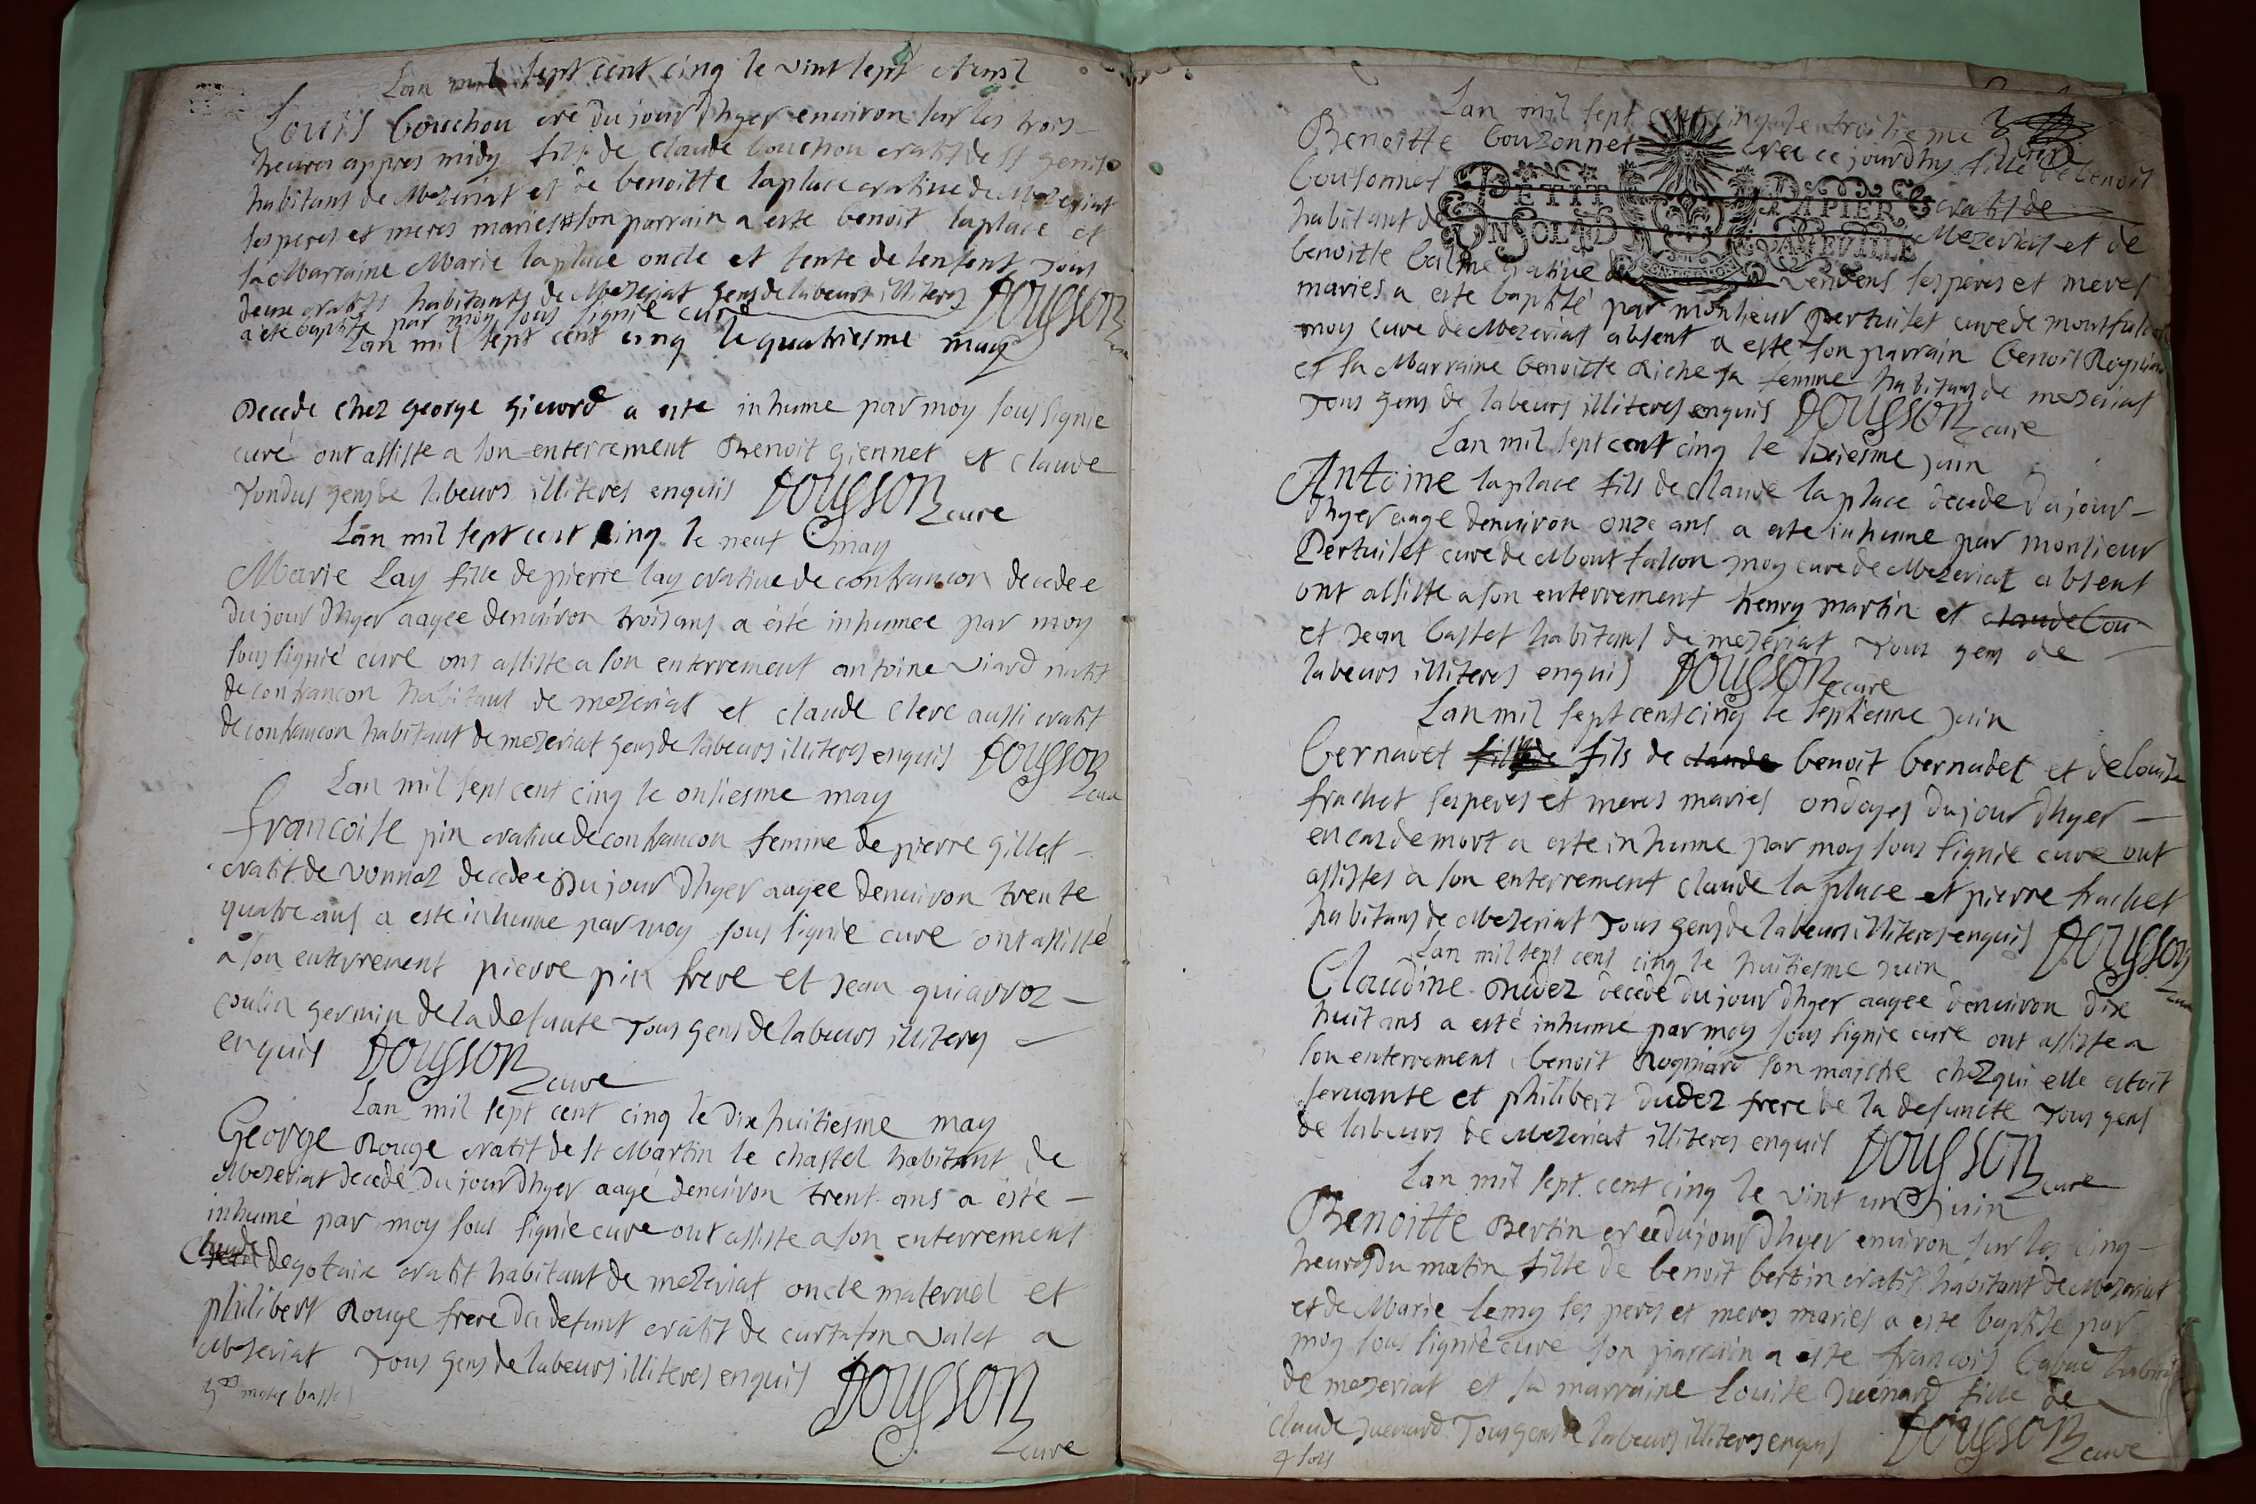 Lan mil sept cent cinq le vint sept
Louis bouchou cré du jour dhyer environ sur les trois
heures appres midy fils de claude bouchou cratif de st genis
habitant de Mezeriat et de benoitte laplace crative de Mezeriat
ses peres et meres maries son parrain a esté benoit laplace et
sa Marraine Marie laplace oncle et tente de lenfent tous
deux cratifs habitants de Mezeriat gens de labeurs illiteres DOUGSON
a été baptisé par moy sous signié curé
Lan mil sept cent cinq le quatriesme may
Decede chez george gievord a este inhume par moy sous signie
curé ont assiste a son enterrement Benoit giennet et claude
tondus gens de labeurs illiteres enquis DOUGSON cure
Lan mil sept cent cinq le neuf may
Marie Lay fille de pierre lay crative de confrancon decedee
du jour dhyer aagee denviron trois ans a été inhumee par moy
sous signié curé ont assiste a son enterrement antoine viard natif
de confrancon habitant de mezeriat et claude clerc aussi cratif
de confrancon habitant de mezeriat gens de labeurs illiteres enquis DOUGSON cure
Lan mil sept cent cinq le onsiesme may
francoise pin crative de confrancon femme de pierre gillet
cratif de vonnaz decedee du jour dhyer aagee denviron trente
quatre ans a este inhume par moy sous signié curé ont assisté
a son enterrement pierre pin frere et Jean quiarroz
cousin germin de la defunte tous gens de labeurs illiteres
enquis DOUGSON cure
Lan mil sept cent cinq le dix huitiesme may
George Rouge cratif de st Martin le chastel habitant de
Mezeriat decedé du jour dhyer aagé denviron trent ans a été
inhumé par moy sous signie cure ont assiste a son enterrement
claude degotaix cratif habitant de mezeriat oncle maternel et
philibert Rouge frere du defunt cratif de curtafon valet a
Mezeriat tous gens de labeurs illiteres enquis DOUGSON
cure
Lan mil sept cent cinq le troisieme
Benoitte bouzonnet cree ce jourdhuy fille de benoit
bousonnet cratif de
PETIT PAPIER
habitant de Mezeriat et de
UN SOL 4 D LA FEVILLE
benoitte balme crative de vendens ses peres et meres
maries a este baptisé par monsieur pertuiset cure de montfalcon
moy cure de Mezeriat absent a este son parrain benoit Rogniard
et sa Marraine benoitte Riche sa femme habitans de mezeriat
tous gens de labeurs illiteres enquis DOUGSON cure
Lan mil sept cent cinq le sixiesme juin
Antoine laplace fils de claude la place decede du jour
dhyer aage denviron onze ans a este inhume par monsieur
Pertuiset cure de Mont falcon moy cure de Mezeriat absent
ont assiste a son enterrement henry martin et claude bou
et Jean bastet habitans de mezeriat tous gens de
labeurs illiteres enquis DOUGSON cure
Lan mil sept cent cinq le septiesme juin
bernadet fille de fils de claude benoit bernadet et de louise
frachet ses peres et meres maries ondoyes du jour dhyer
en cas de mort a este inhume par moy sous signie cure ont
assistes a son enterrement claude la place et pierre frachet
habitans de Mezeriat tous gens de labeurs illiteres enquis DOUGSON cure
Lan mil sept cent cinq le huitiesme juin
Claudine oudez decede du jour dhyer aagee denviron dix
huit ans a esté inhumé par moy sous signie cure ont assiste a
son enterrement benoit Rogniard son maistre chez qui elle estoit
servante et philibert oudez frere de la defuncte tous gens
de labeurs de Mezeriat illiteres enquis DOUGSON cure
Lan mil sept cent cinq le vint un juin
Benoitte Bertin creé du jour dhyer environ sur les cinq
heures du matin fille de benoit bertin cratif habitant de Mezeriat
et de Marie lemy ses peres et meres maries a este baptise par
moy sous signié cure son parrain a este francois
de mezeriat et sa marraine Louise Juenard fille de
claude Juenard tous gens de labeurs illiteres enquis DOUGSON cure